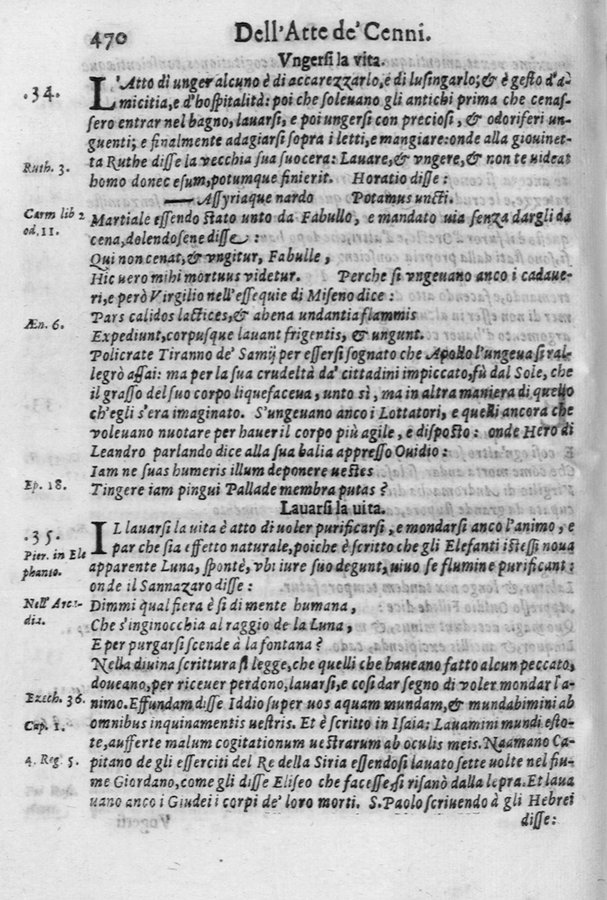 470 Dell'Arte de' Cenni.
Vngersi la vita.
.34. L'Atto di unger alcuno è di accarezzarlo, e di lusingarlo; & è gesto d'a-
micitia, e d'hospitalità: poi che soleuano gli antichi prima che cenas-
sero entrar nel bagno, lauarsi, e poi ungersi con preciosi, & odoriferi un-
guenti; e finalmente adagiarsi sopra i letti, e mangiare: onde alla giouinet-
Ruth. 3. ta Ruthe disse la vecchia sua suocera: Lauare, & vngere, & non te uideat
homo donec esum, potumque finierit. Horatio disse:
Carm lib 2 od. 11. —— Assyriaque nardo Potamus uncti.
Martiale essendo stato unto da Fabullo, e mandato uia senza dargli da
cena, dolendosene disse:
Qui non cenat, & vngitur, Fabulle,
Hic uero mihi mortuus videtur. Perche si vngeuano anco i cadaue-
ri, e però Virgilio nell'essequie di Miseno dice:
Æn. 6. Pars calidos lactices, & ahena undantia flammis
Expediunt, corpusque lauant frigentis, & ungunt.
Policrate Tiranno de' Samij per essersi sognato che Apollo l'ungeua si ral-
legrò assai: ma per la sua crudeltà da' cittadini impiccato, fù dal Sole, che
il grasso del suo corpo liquefaceua, unto sì, ma in altra maniera di quello
ch'egli s'era imaginato. S'ungeuano anco i Lottatori, e quelli ancora che
voleuano nuotare per hauer il corpo più agile, e disposto: onde Hero di
Leandro parlando dice alla sua balia appresso Ouidio:
Iam ne suas humeris illum deponere uestes
Ep. 18. Tingere iam pingui Pallade membra putas?
Lauarsi la uita.
.35. IL lauarsi la uita è atto di uoler purificarsi, e mondarsi anco l'animo, e
Pier. in Ele phanto. par che sia effetto naturale, poiche è scritto che gli Elefanti istessi noua
apparente Luna, spontè, vbi iure suo degunt, uiuo se flumine purificant:
onde il Sannazaro disse:
Nell' Arca- dia. Dimmi qual fiera è sì di mente humana,
Che s'inginocchia al raggio de la Luna,
E per purgarsi scende à la fontana?
Nella diuina scrittura si legge, che quelli che haueano fatto alcun peccato,
doueano, per riceuer perdono, lauarsi, e cosi dar segno di voler mondar l'a-
Ezech. 36. nimo. Effundam disse Iddio super uos aquam mundam, & mundabimini ab
Cap. 1. omnibus inquinamentis uestris. Et è scritto in Isaia: Lauamini mundi esto-
te, aufferte malum cogitationum uestrarum ab oculis meis. Naamano Ca-
4. Reg. 5. pitano de gli esserciti del Re della Siria essendosi lauato sette uolte nel fiu-
me Giordano, come gli disse Eliseo che facesse, si risanò dalla lepra. Et laua
uano anco i Giudei i corpi de' loro morti. S. Paolo scriuendo à gli Hebrei
disse: